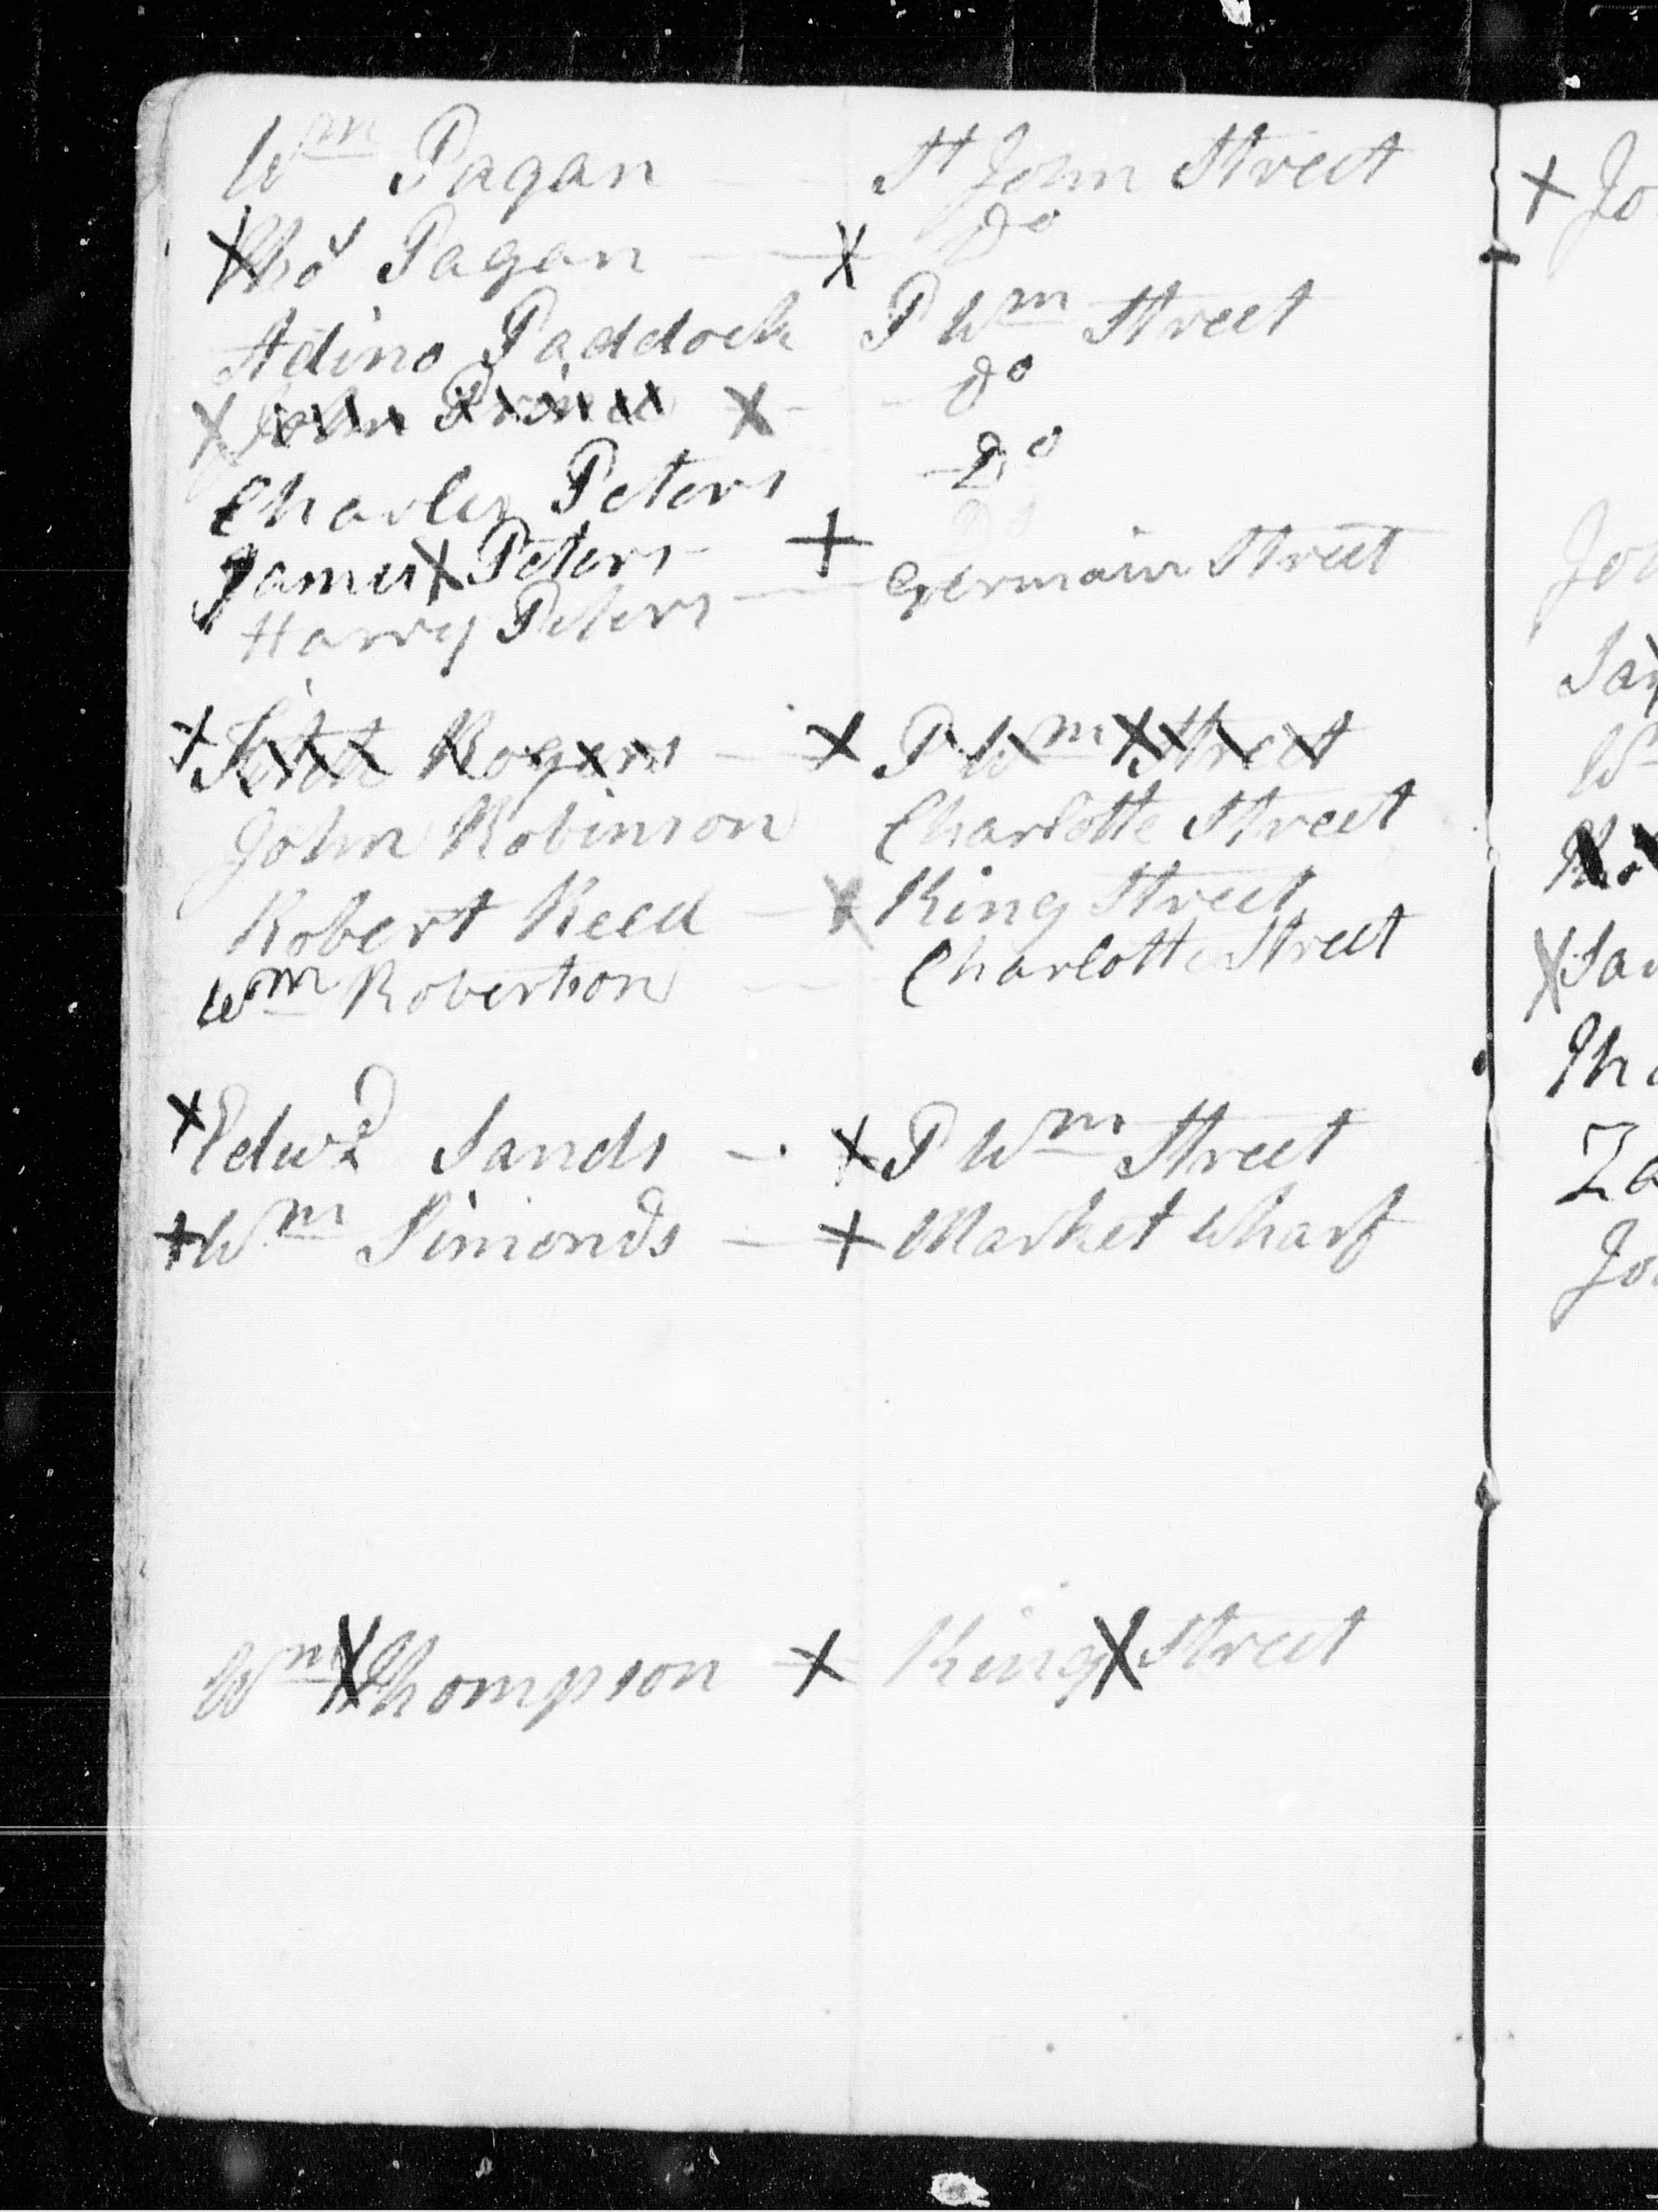 Wm Pagan — St John Street
X Thos Pagan — X Do
Adino Paddock P Wm Street
X John Prince X - - Do
Charles Peters Do
James X Peters + Do
Harry Peters — Germain Street
X Rogers — X P Wm Street
John Robinson Charlotte Street
Robert Reed — X King Street
Wm Robertson — Charlotte Street
X Edwd Sands — X P Wm Street
+ Wm Simonds — + Market Wharf
Wm X Thompson + King X Street
+ Jo
Jo
Wm
X
Tho
Za
Jo